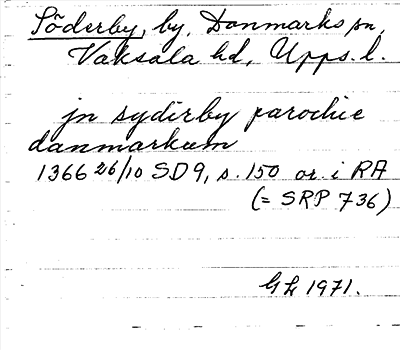 Söderby, by, Danmarks sn,
Vaksala hd, Upps. l.
jn sydirby parochie
danmarkum
1366 26/10 SD9, s. 150 or. i RA
(= SRP 736)
GL 1971.